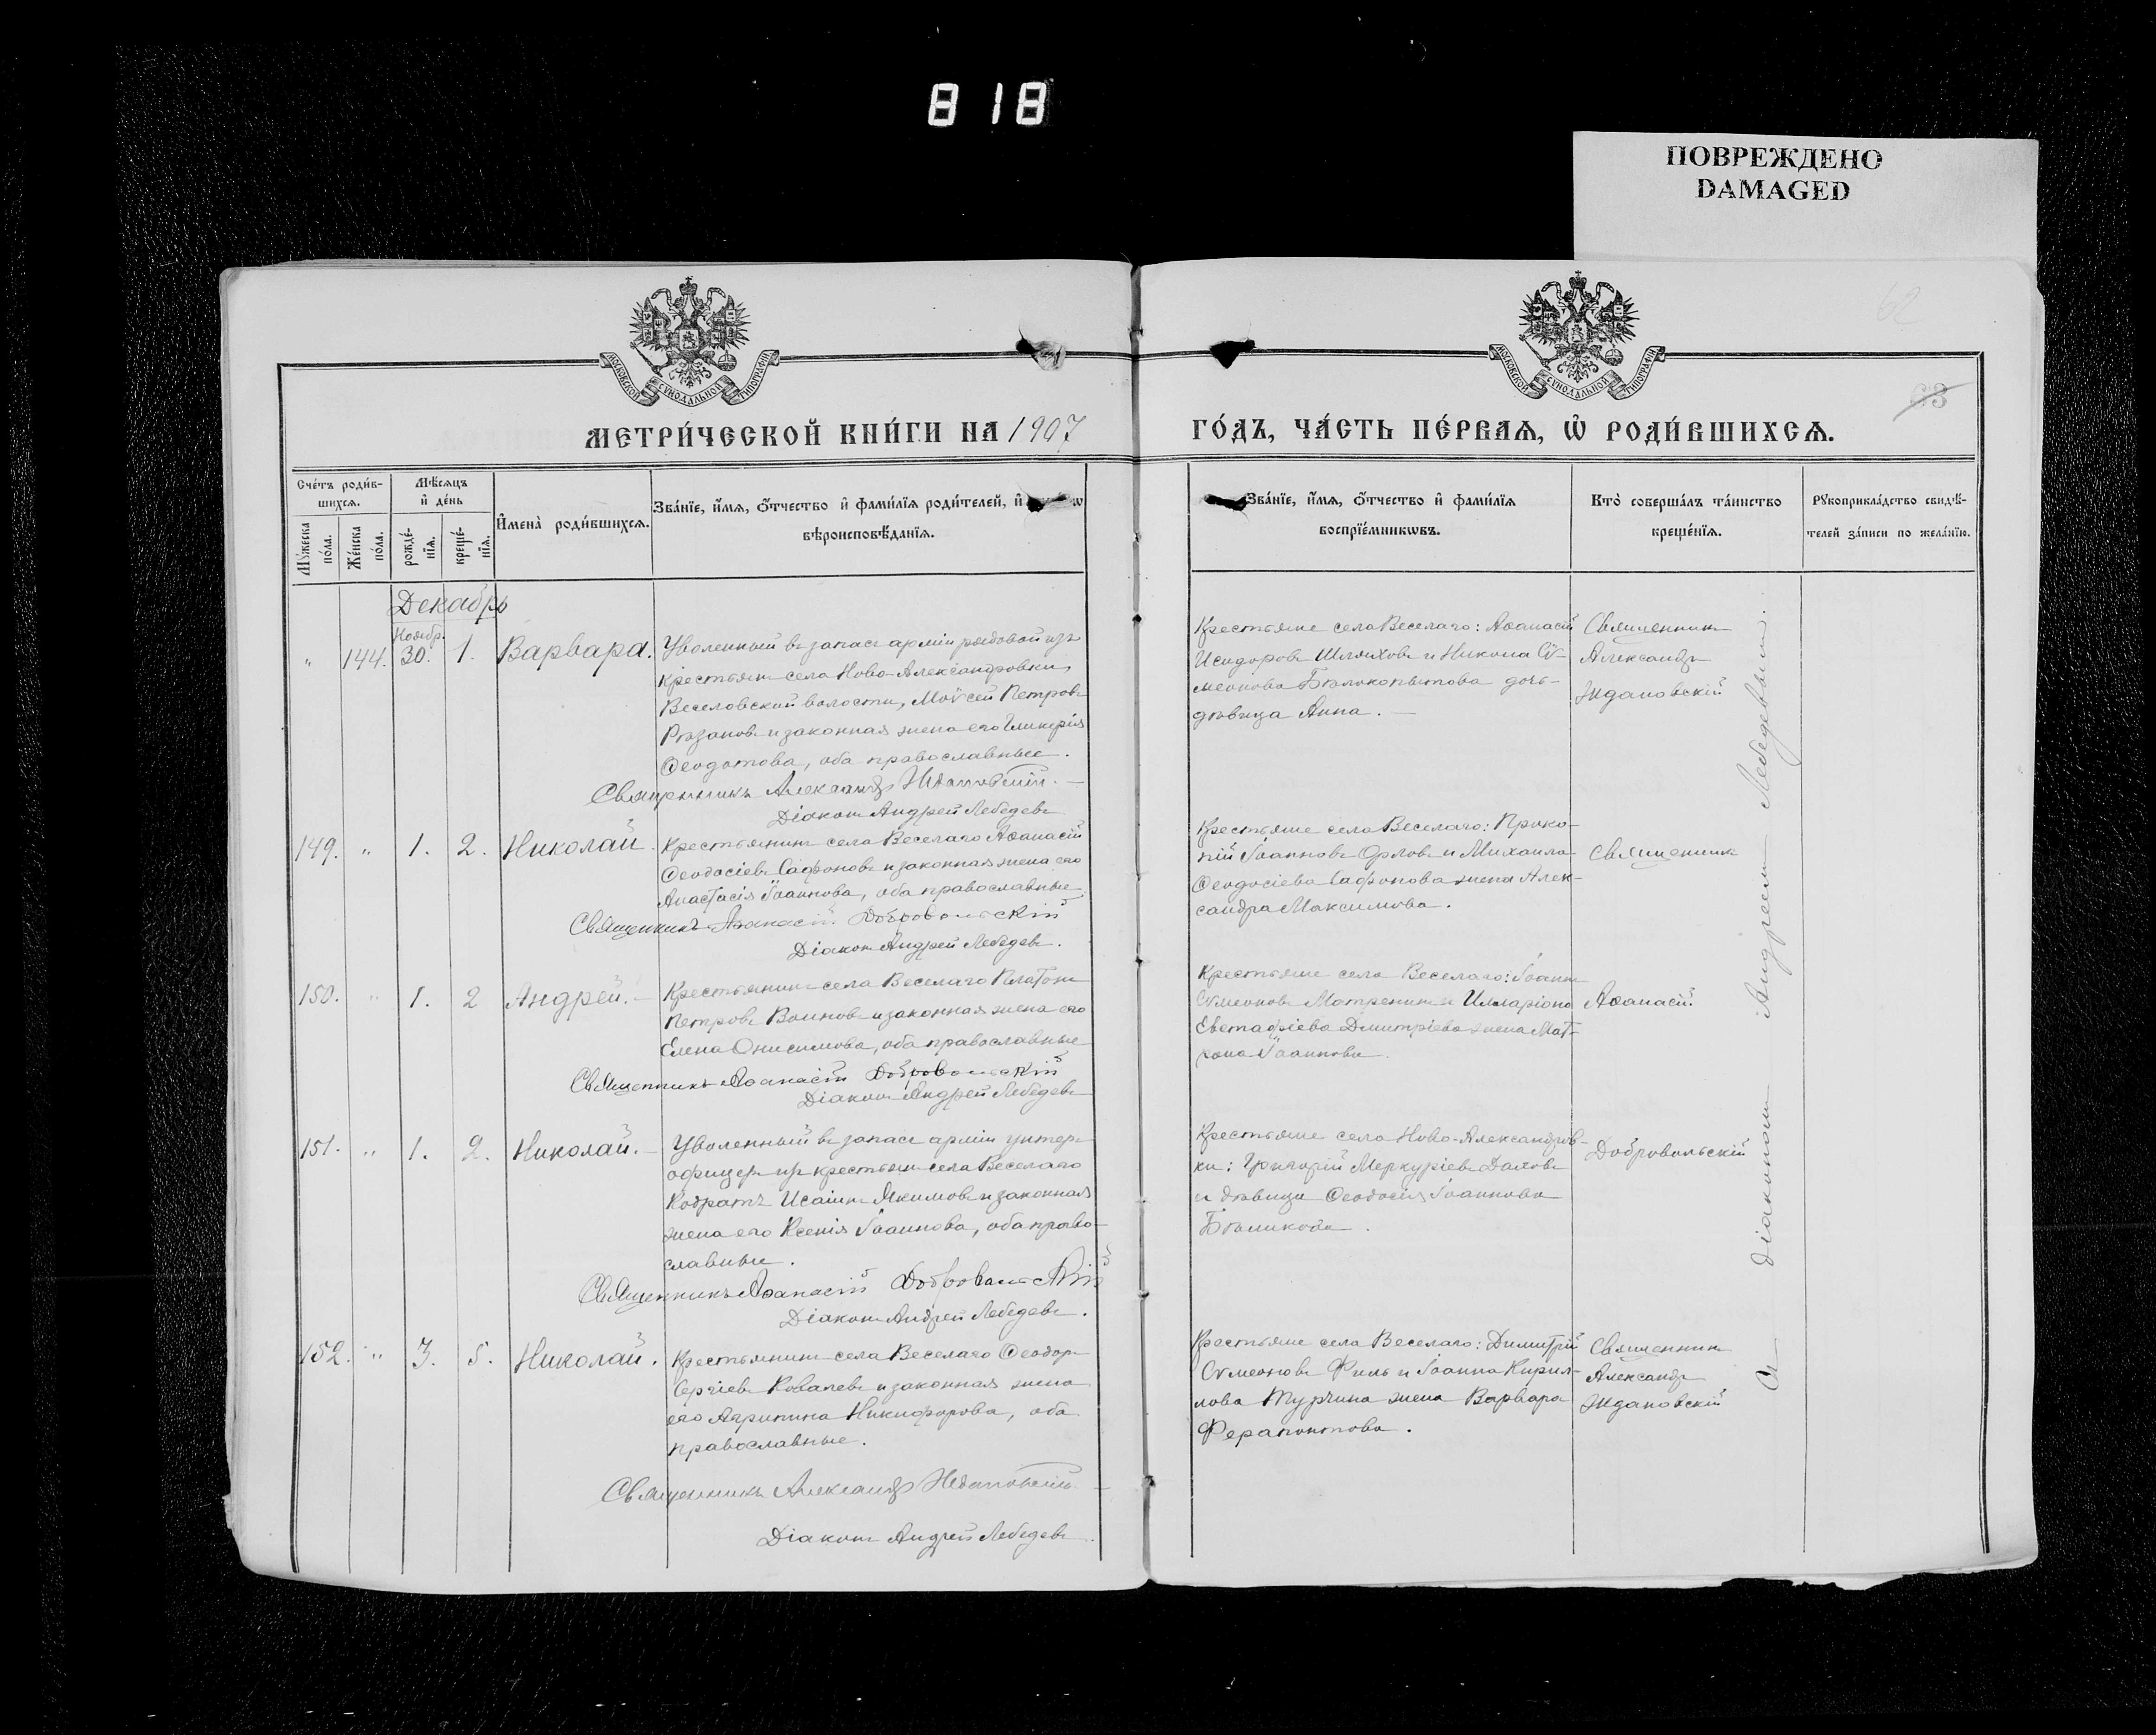 818
ПОВРЕЖДЕНО
DAMAGED
62
63
МОСКОВСКОЙ СѴНОДАЛЬНОЙ ТИПОГРАФІИ
МОСКОВСКОЙ СѴНОДАЛЬНОЙ ТИПОГРАФІИ
МЕТРИ́ЧЕСКОЙ КНИ́ГИ НА 1907
ГО́ДЪ, ЧА́СТЬ ПЕ́РВАѦ, Ѡ РОДИ́ВШИХСѦ.
Сче́тъ роди́в-
шихсѧ.
Мꙋ́жеска по́ла.
Же́нска по́ла.
Мѣ́сѧцъ
и де́нь
рожде́-нїѧ.
креще́-нїѧ.
И́мена̀ роди́вшихсѧ.
Зва́нїе, и́мѧ, ѻ́тчество и фами́лїѧ роди́телей, и
вѣроисповѣ́данїѧ.
Зва́нїе, и́мѧ, ѻ́тчество и фами́лїѧ
воспрїе́мникѡвъ.
Кто̀ соверша́лъ та́инство
креще́нїѧ.
Рꙋкоприкла́дство свидѣ́-
телей за́писи по жела́нїю.
Декабрь
Ноябр.
" 144. 30. 1. Варвара.
Уволенный въ запасъ арміи рядовой изъ
крестьянъ села Ново-Александровки,
Веселовской волости, Моѵсей Петровъ
Рязановъ и законная жена его Гликерія
Ѳеодотова, оба православные.
Священникъ Александръ Ждановскій.
Діаконъ Андрей Лебедевъ
Крестьяне села Веселаго: Аѳанасій
Исидоровъ Шляховъ и Никона Сѵ-
меонова Бѣлокопытова дочь-
дѣвица Анна.
Священникъ
Александръ
Ждановскій
149. " 1. 2. Николай.
Крестьянинъ села Веселаго Аѳанасій
Ѳеодосіевъ Сафоновъ и законная жена его
Анастасія Іоаннова, оба православные
Священникъ Аѳанасій Добровольскій
Діаконъ Андрей Лебедевъ.
Крестьяне села Веселаго: Проко-
пій Іоанновъ Орловъ и Михаила
Ѳеодосіева Сафонова жена Алек-
сандра Максимова.
Священникъ
150. " 1. 2 Андрей.
Крестьянинъ села Веселаго Платонъ
Петровъ Воиновъ и законная жена его
Елена Онисимова, оба православные
Священникъ Аѳанасій Добровольскій
Діаконъ Андрей Лебедевъ
Крестьяне села Веселаго: Іоаннъ
Сѵмеоновъ Матренинъ и Илларіона
Евстафіева Димитріева жена Мат-
рона Іоаннова.
Аѳанасій
151. " 1. 2. Николай.
Уволенный въ запасъ арміи унтеръ-
офицеръ изъ крестьянъ села Веселаго
Кодратъ Исаіинъ Якимовъ и законная
жена его Ксенія Іоаннова, оба право-
славные.
Священникъ Аѳанасій Добровольскій
Діаконъ Андрей Лебедевъ.
Крестьяне села Ново-Александров-
ки: Григорій Меркуріевъ
и дѣвица Ѳеодосія Іоаннова
Добровольскій
152. " 3. 5. Николай.
Крестьянинъ села Веселаго Ѳеодоръ
Сергіевъ Ковалевъ и законная жена
его Агрипина Никифорова, оба
православные.
Священникъ Александръ Ждановскій
Діаконъ Андрей Лебедевъ.
Крестьяне села Веселаго: Димитрій
Сѵмеоновъ Филь и Іоанна Кирил-
лова Турчина жена Варвара
Ферапонтова.
Священникъ
Александръ
Ждановскій
Съ діакономъ Андреемъ Лебедевымъ.